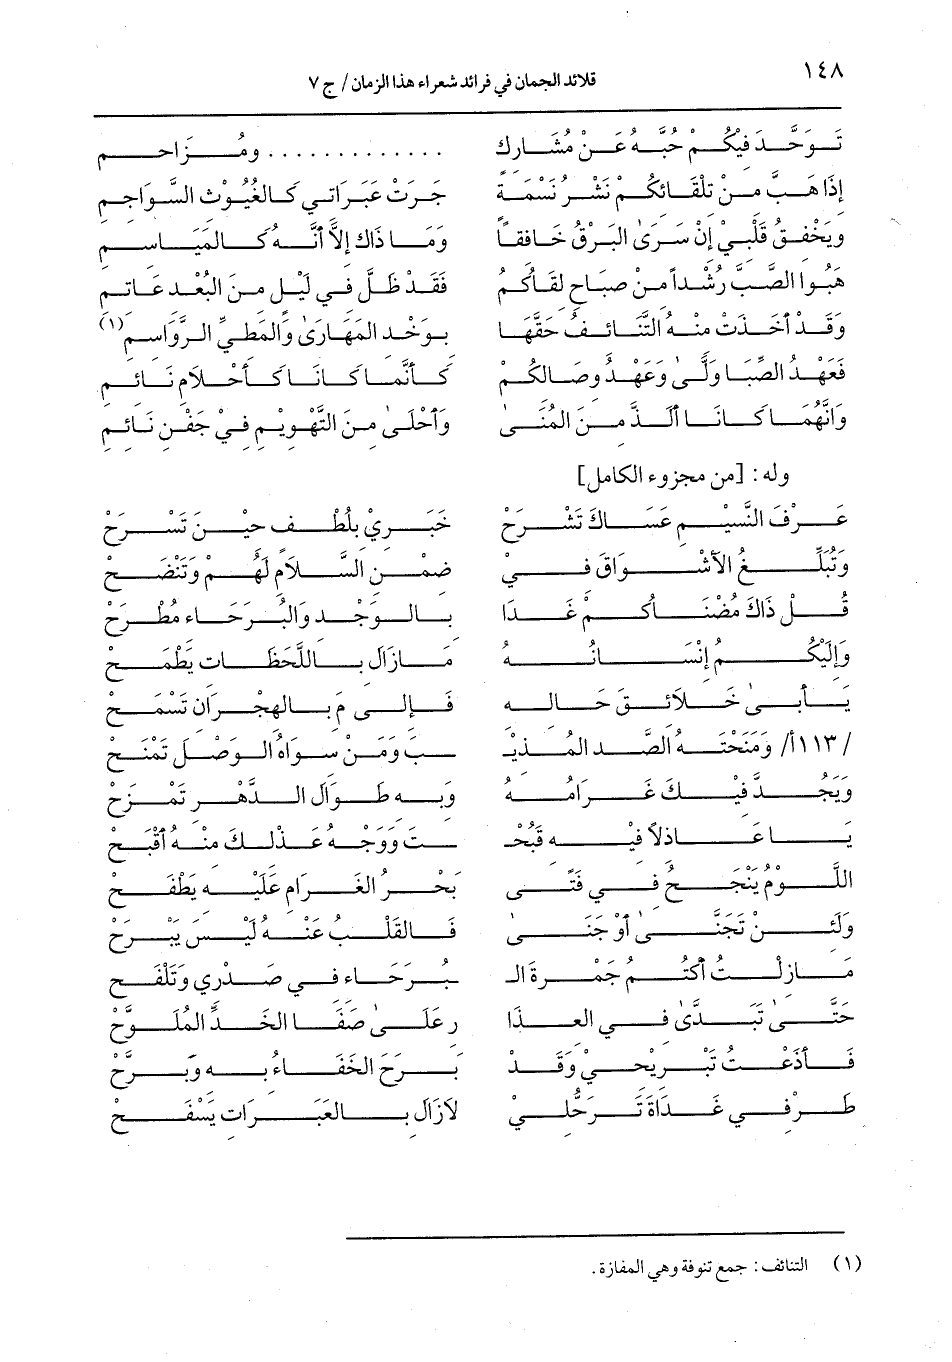 ١٤٨
قلائد الجمان في فرائد شعراء هذا الزمان / ج ٧
تَوَحَّدَ فيكُمْ حُبَّهُ عَنْ مُشَارِكٍ ............. ومُزَاحمِ
إذَا هَبَّ مِنْ تلْقَائكُمْ نَشْرُ نَسْمَةً جَرَتْ عَبَرَاتي كَالغُيُوْثِ السَّوَاجمِ
ويَخْفقُ قَلْبيْ إنْ سَرَىٰ البَرْقُ خَافقاً وَمَا ذَاكَ إلاَّ أنَّهُ كَالمَيَاسمِ
هَبُوا الصَّبَّ رُشْداً منْ صبَاحِ لقَاكُمُ فَقَدْ ظَلَّ في لَيْلٍ منَ البُعْدِ عَاتمِ
وَقَدْ أخَذَتْ منْهُ التَّنَائفُ حَقَّهَا بوَخْد المَهَارَىٰ وَالمَطيِّ الرَّوَاسمِ(١)
فَعَهْدُ الصِّبَا وَلَّىٰ وَعَهْدُ وصَالكُمْ كَأنَّمَا كَانَا كَأحْلاَمِ نَائمِ
وَانَّهُمَا كَانَا ألَذَّ منَ المُنَىٰ وَأحْلَىٰ منَ التَّهْويْمِ فيْ جَفْنِ نَائمِ
وله : [من مجزوء الكامل]
عَرْفَ النَّسيْمِ عَسَاكَ تَشْرَحْ خَبَريْ بلُطْفٍ حيْنَ تَسْرَحْ
وَتُبَلِّغُ الأشْوَاقَ فيْ ضمْنِ السَّلاَمِ لَهُمْ وَتَنْضَحْ
قُلْ ذَاكَ مُضْنَاكُمْ غَدَا بالوَجْد وَالبُرَحَاء مُطْرَحْ
وَإلَيْكُمُ إنْسَانُهُ مَازَالَ باللَّحَظَات يَطْمَحْ
يَأبَىٰ خَلاَئقَ حَاله فَإلى مَ بالهجْرَان تَسْمَحْ
/١١٣أ/ وَمَنَحْتَهُ الصَّدَ المُذيْـ ـبَ وَمَنْ سوَاهُ الوَصْلَ تَمْنَحْ
وَيَجُدَّ فيْكَ غَرَامُهُ وَبه طَوَالَ الدَّهْرِ تَمْزَحْ
يَا عَاذلاً فيْه قَبُحْـ ـتَ وَوَجْهُ عَذْلكَ منْهُ أقْبَحْ
اللَّوْمُ يَنْجَحُ في فَتًى بَحْرُ الغَرَامِ عَلَيْه يَطْفَحْ
وَلَئنْ تَجَنَّىٰ أوْ جَنَىٰ فَالقَلْبُ عَنْهُ لَيْسَ يَبْرَحْ
مَازلْتُ أكْتُمُ جَمْرَةَ الـ ـبُرَحَاء في صَدْري وَتَلْفَح
حَتَّىٰ تَبَدَّىٰ في العذَا رِ عَلَىٰ صَفَا الخَدِّ المُلَوَّحْ
فَأذَعْتُ تَبْريْحيْ وَقَدْ بَرَحَ الخَفَاءُ به وَبَرَّحْ
طَرْفي غَدَاةَ تَرَحُّليْ لاَزَالَ بالعَبَرَات يَسْفَحْ
(١) التنائف : جمع تنوفة وهي المفازة .